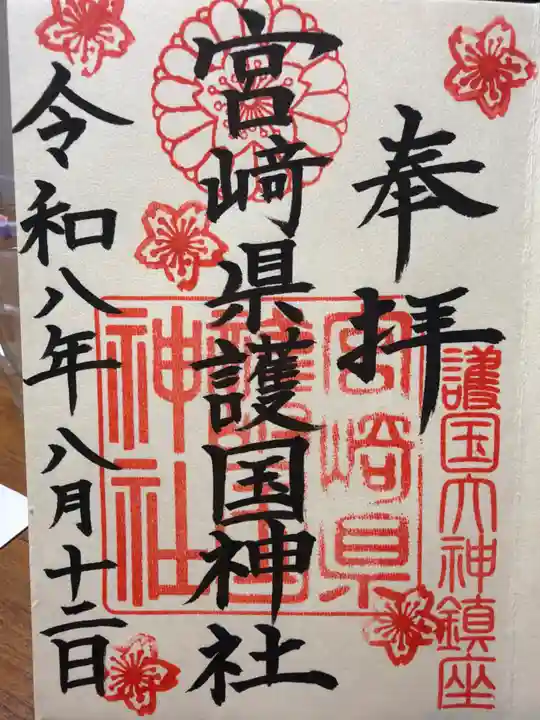 奉拝
護国大神鎮座
宮﨑県護国神社
宮崎県
護国
神社
令和八年八月十二日